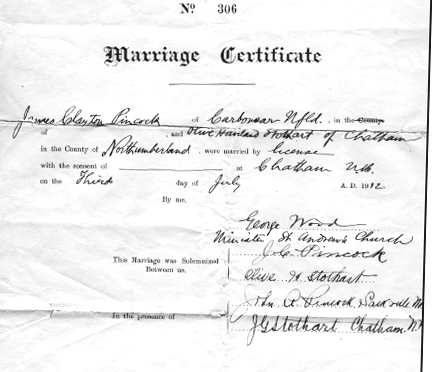 No 306
Marriage Certificate
James Clayton Pincock of Carbonear Nfld. , in the County
of , and Olive Haviland Stothart of Chatham
in the County of Northumberland , were married by license
with the consent of at Chatham N.B.
on the Third day of July A. D. 1912
By me.
George Wood
Minister St Andrew's Church
J. C. Pincock
This Marriage was Solemnized
Between us.
Olive H Stothart
John A. Pincock, Sackville
In the presence of
J G Stothart Chatham N